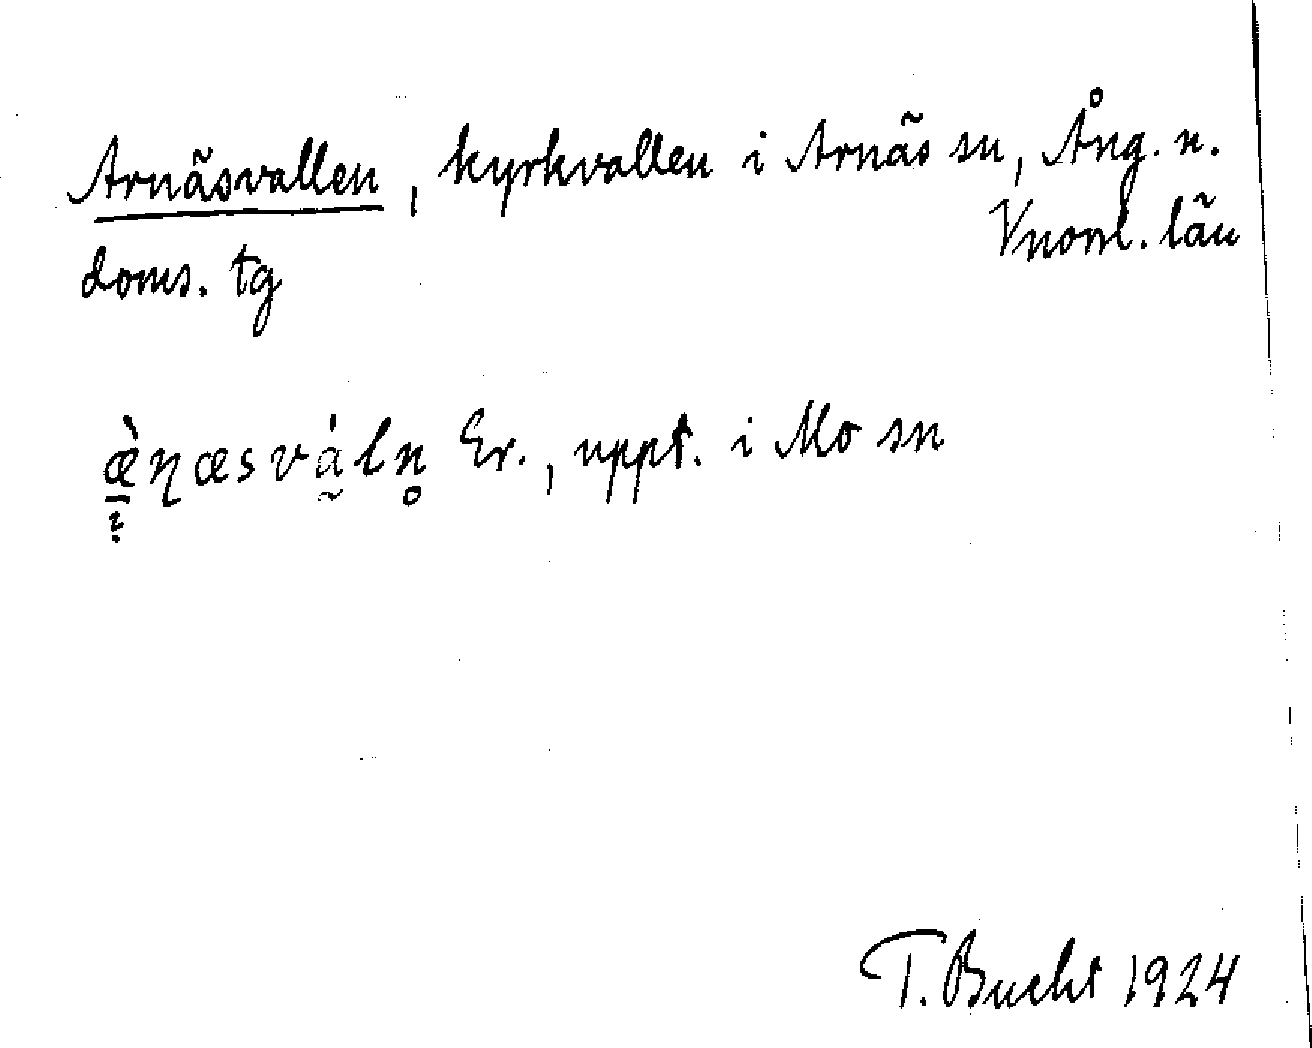 Arnäsvallen, kyrkvallen i Arnäs sn, Ång. n.
doms. tg Vnorrl. län
æ̀ɳæsváln̥ Er., uppt. i Mo sn
T. Bucht 1924